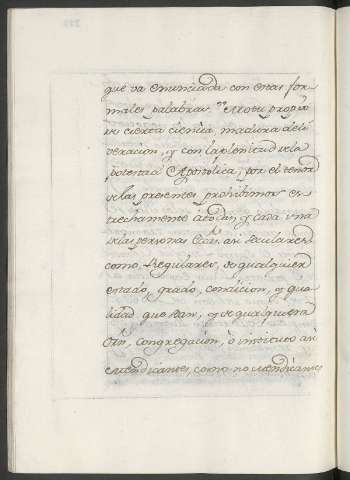 que va enunciada con estas for-
males palabras. "Motu proprio
de cierta ciencia madura deli
veracion, y con la plenitud de la
potestad Apostolica, por el tenor
de las presentes, prohibimos es-
trechamente à todas, y cada una
de las personas Ecca.s asi seculares
como Regulares, de qualquier
estado, grado, condicion, y qua-
lidad que sean, y de qualquiera
Orn, Congregacion, ò instituto asi
mendicantes, como no mendicantes